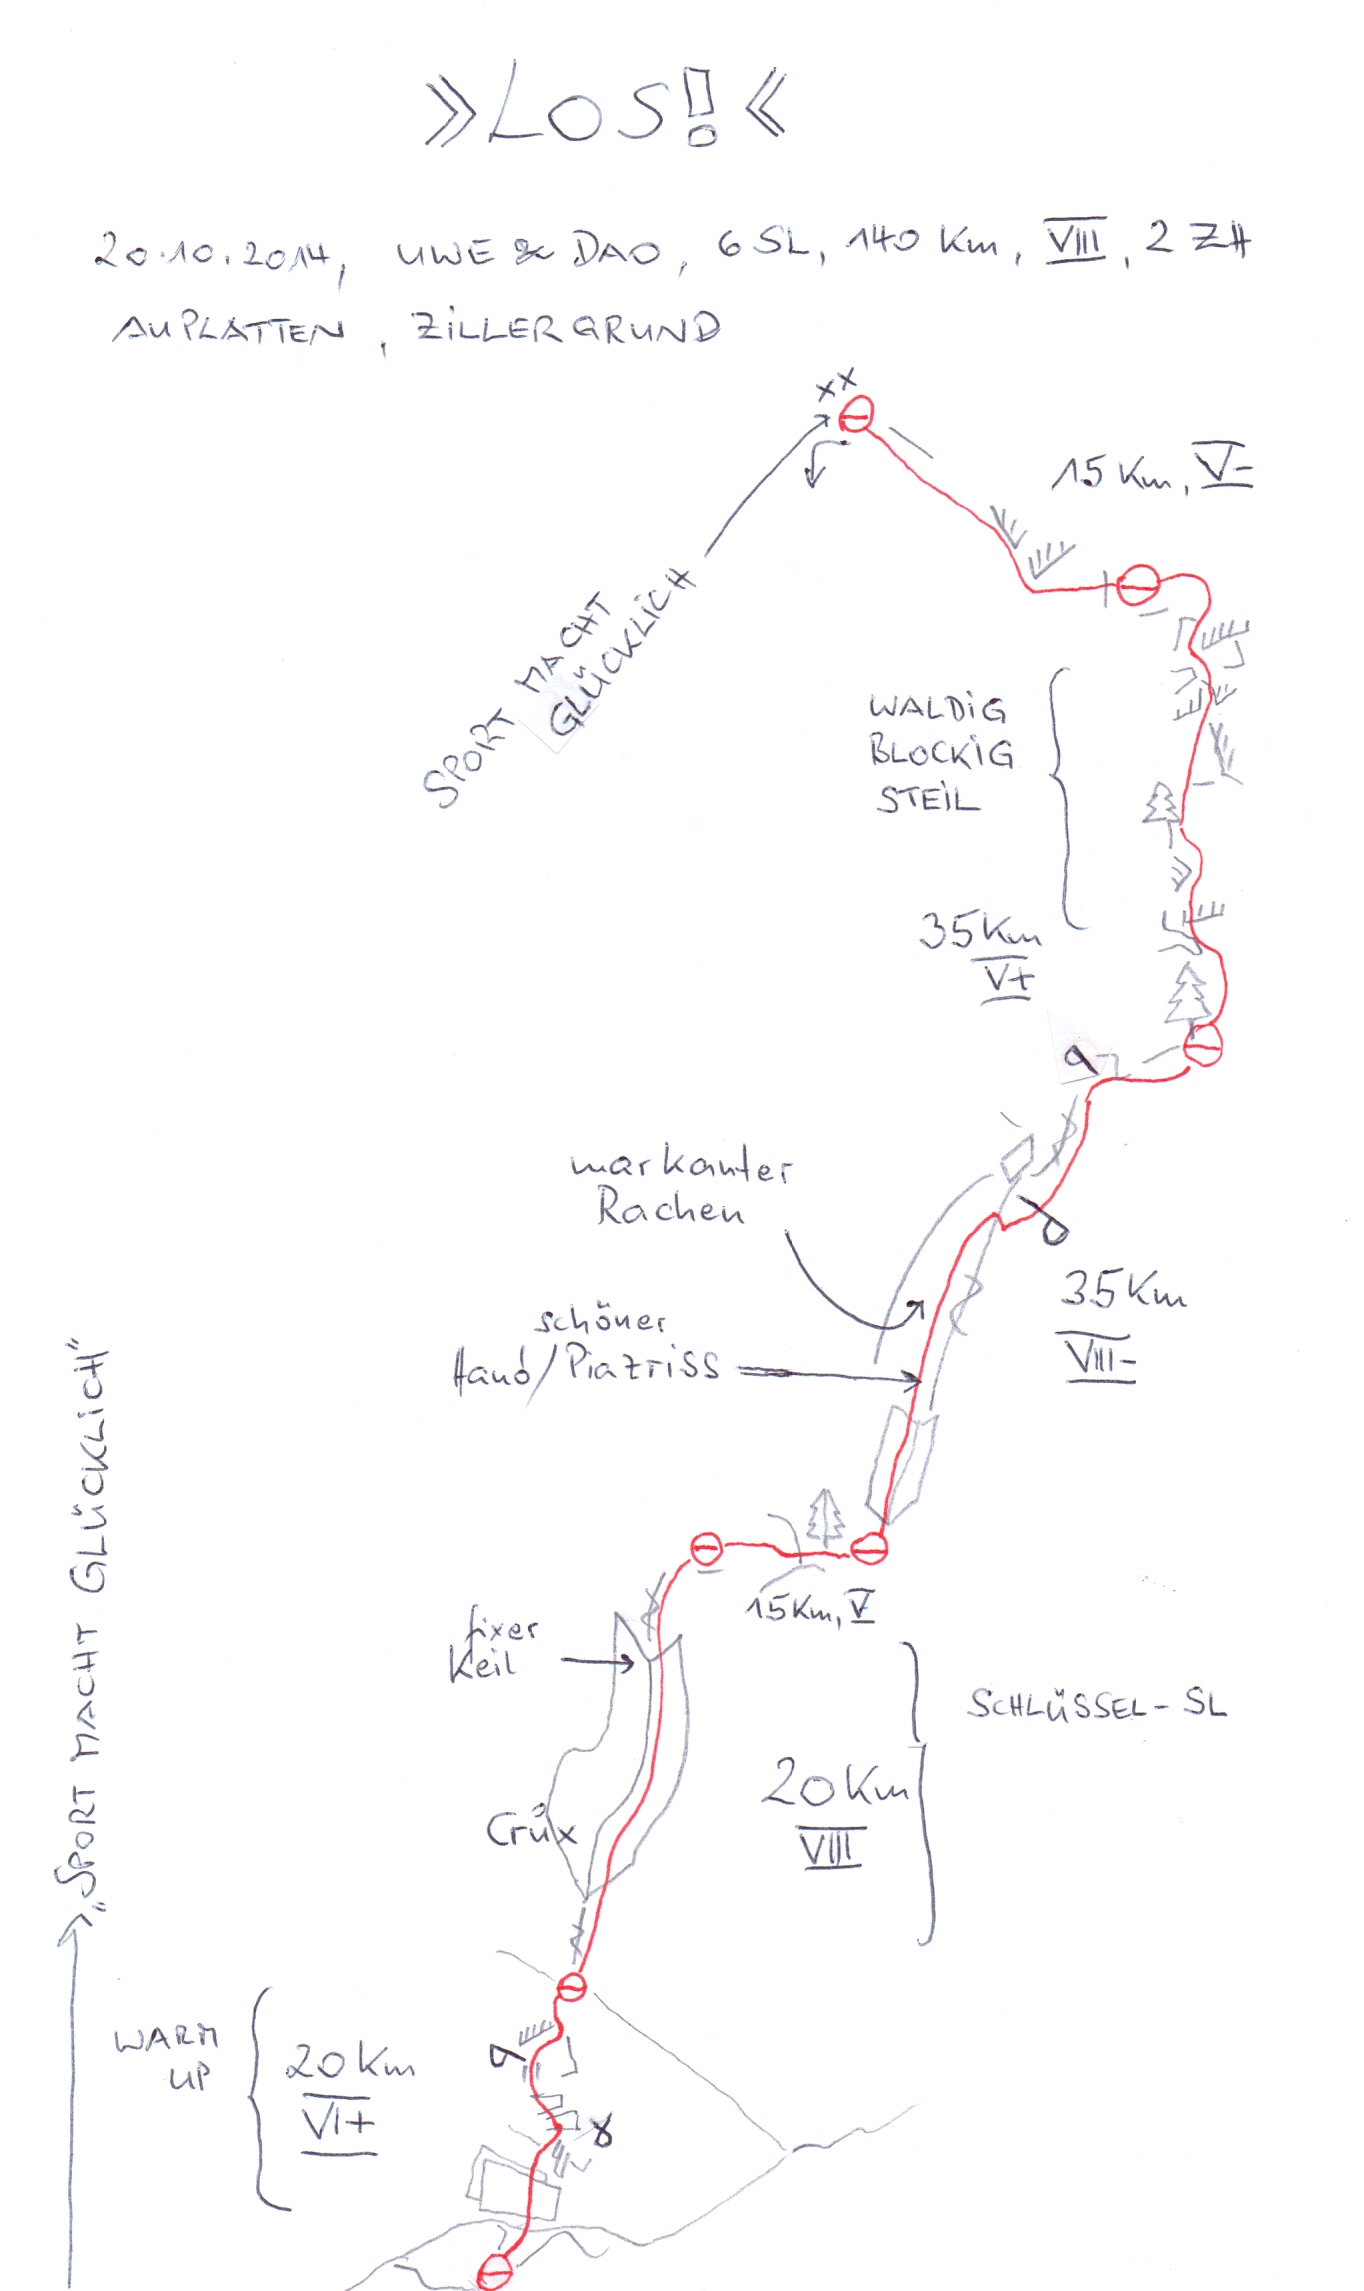 »LOS!«
20.10.2014, UWE & DAO, 6 SL, 140 Km, VIII, 2 ZH
AUPLATTEN, ZiLLERGRUND
15 Km, V-
SPORT MACHT
GLÜCKLiCH
WALDiG
BLOCKiG
STEiL
35 Km
V+
markanter
Rachen
35 Km
VIII-
schöner
Hand/Piazriss
15 Km, V
fixer
Keil
SCHLÜSSEL-SL
20 Km
VIII
Crux
„SPORT MACHT GLÜCKLiCH"
WARM
UP
20 Km
VI+